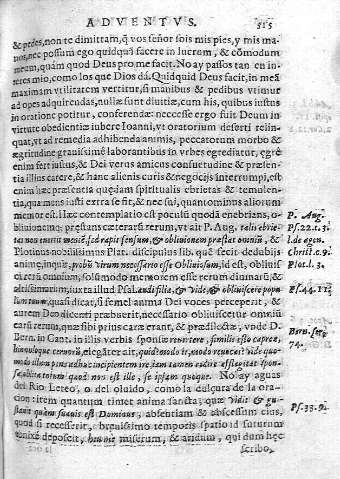 ADVENTVS. 515
& pedes, non te dimittam, q̃ vos señor sois mis pies, y mis ma-
nos, nec possum ego quidquã facere in lucrem, & cõmodum
meum, quàm quod Deus pro me facit. No ay passos tan en in-
teres mio, como los que Dios dá. Quidquid Deus facit, in meã
maximam vtilitatem vertitur, si manibus & pedibus vtimur
ad opes adquirendas, nullæ sunt diuitiæ, cum his, quibus iustus
in oratione potitur, conferendæ: necesse ergo fuit Deum in
virtute obedientiæ iubere Ioanni, vt oratorium deserti relin-
quat, vt ad remedia adhibenda animis, peccatorum morbo &
ægritudine grauissimè laborantibus in vrbes egrediatur, egrè
enim fert iustus, & Dei verus amicus consuetudine & præsen-
tia illius carere, & hanc alienis curis & negocijs interrumpi, est
enim hæc præsentia quædam spiritualis ebrietas & temolen-
tia, qua mens iusti extra se fit, & nec sui, quantominus aliorum
memor est. Hæc contemplatio est poculũ quodã enebrians, o-
bliuionẽq; præstans cæterarũ rerum, vt ait P. Aug. talis ebrie-
tas non euertit mentẽ, sed rapit sensum, & obliuionem præstat omniũ, &
Plotinus nobilissimus Plat. discipulus lib. quẽ fecit de dubijs
animę, inquæ, probũ virum necessario esse Obliuiosum, id est, obliuis-
ci rerũ omnium, solũmodo memorem esse rerum diuinarũ, &
altissimarum, iuxta illud Psal. audi filia, & vide, & obliuiscere popu-
lum tuum, quasi dicat, si semel anima Dei voces perceperit, &
aurem Deo dicenti præbuerit, necessario obliuiscetur omniũ
earũ rerum, quæ sibi prius caræ erant, & prædilectæ, vnde D.
Bern. in Cant. in illis verbis sponsæ reuertere, similis esto capreæ,
hinnuloque ceruorũ, eleganter ait, quid modo it, modo reuocat? vide quo-
modo
No ay aguas
del Rio Leteo, o del oluido, como la dulçura de la ora-
cion: item quantum timet anima sancta, quæ vidit & gu-
stauit quàm suauis est Dominus, absentiam & abscessum eius,
quod si recesserit, breuissimo temporis spatio id futurum
enixè deposcit, heu me miserum, & aridum, qui dum hæc
scribo,
P. Aug.
Ps. 22. t. 3.
l. de agen.
Christ. c. 9.
Plot. l. 3.
Ps. 44. 11.
Bern. ser.
74.
Ps. 33. 9.